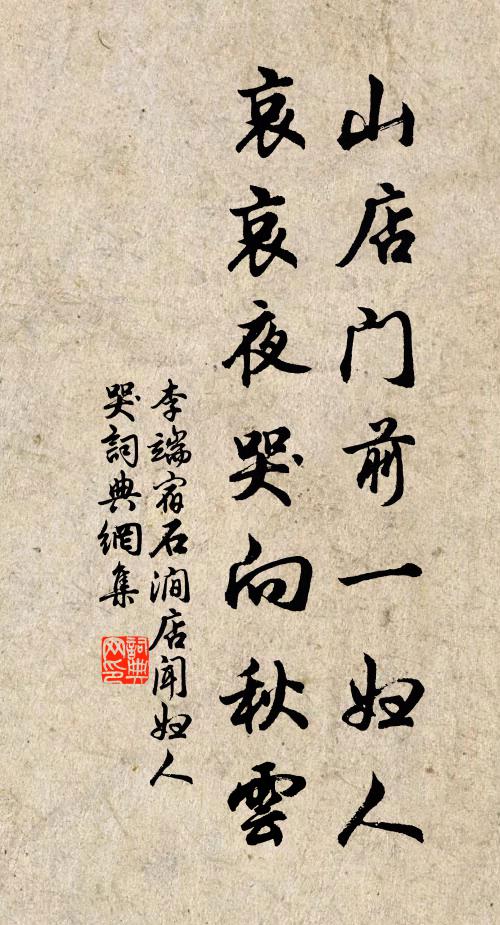 山店门前一妇人
哀哀夜哭向秋雲
李端宿石澗店聞妇人
哭詞典網集
詞典网印